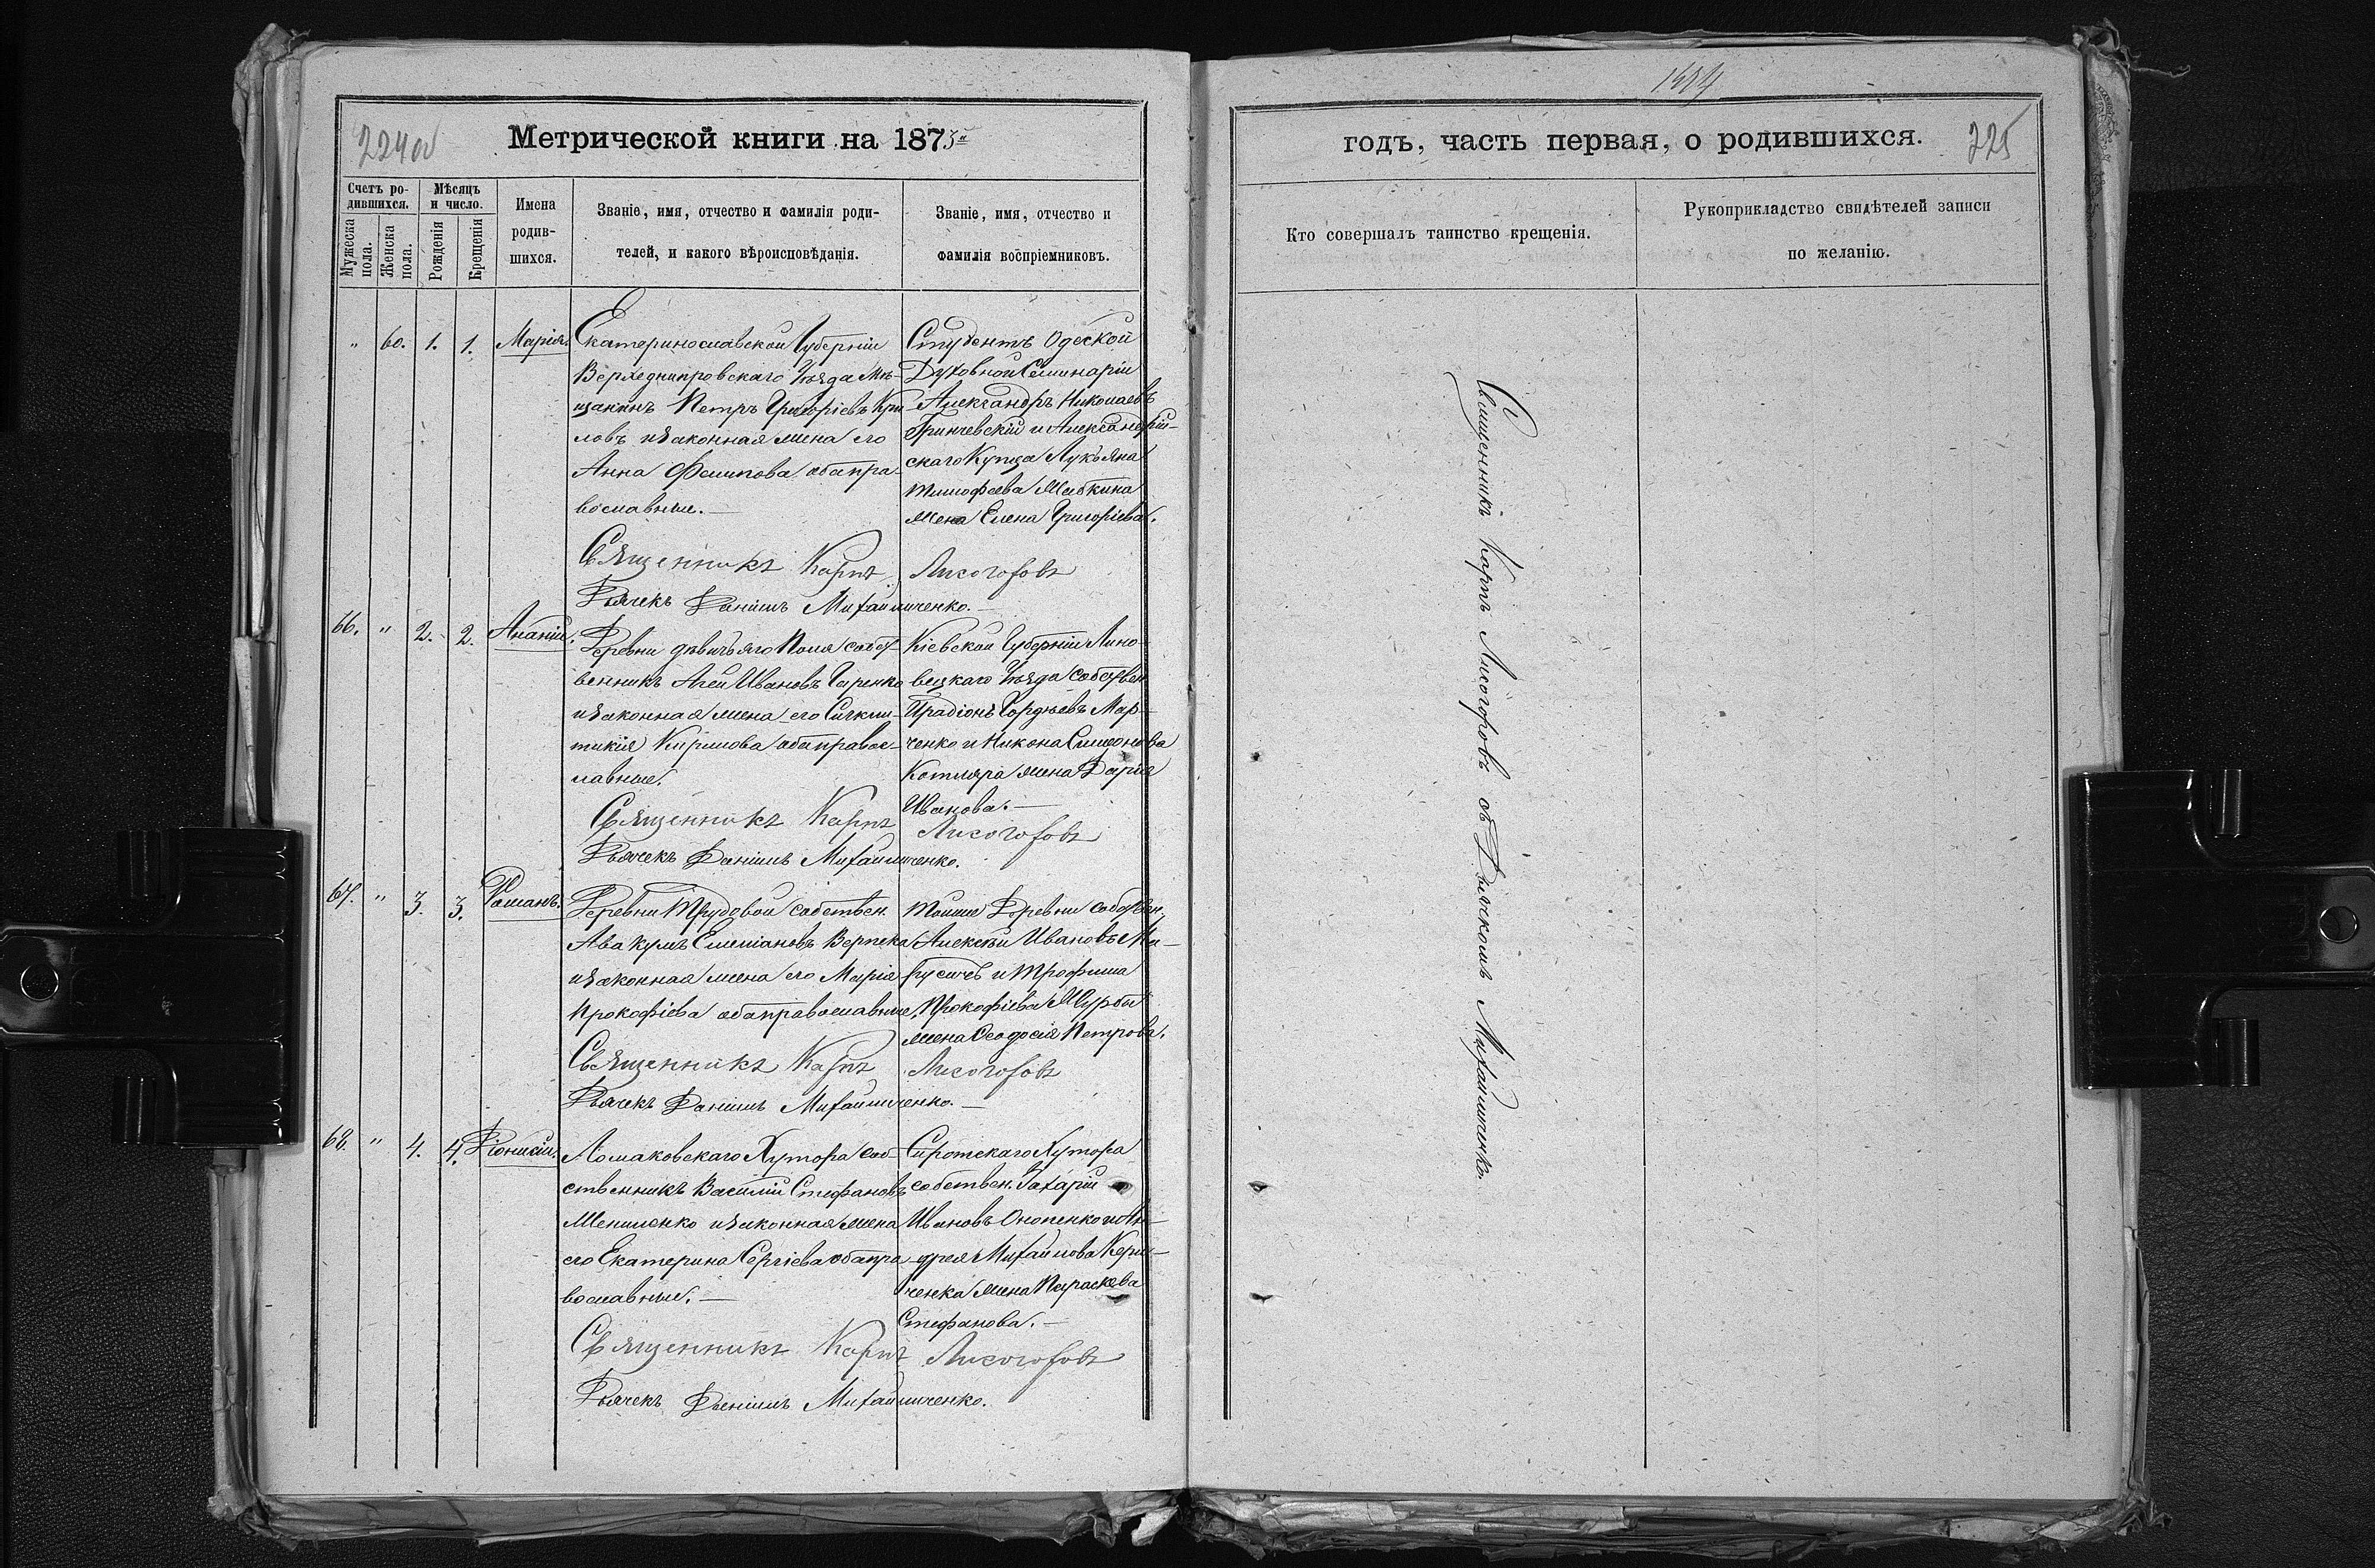 224 об
Метрической книги на 1873й
Счетъ родившихся.
Мужеска пола.
Женска пола.
Мѣсяцъ и число.
Рожденія
Крещенія
Имена родившихся.
Званіе, имя, отчество и фамилія родителей, и какого вѣроисповѣданія.
Званіе, имя, отчество и фамилія воспріемниковъ.
" 60. 1. 1. Марія.
Екатеринославской Губерніи
Верхеднипровскаго Уѣзда Мѣ-
щанинъ Петръ Григоріевъ Кри
ловъ и законная жена его
Анна Филипова оба пра-
вославные. —
Студентъ Одеской
Духовной Семинаріи
Александръ Николаевъ
Гринчевскій и Александрій-
скаго Купца Лукъяна
Тимофеева
жена Елена Григоріева.
Священникъ Карпъ Лисогоровъ
Дьячекъ Даніилъ Михайличенко. —
66. " 2. 2. Ананій.
Деревни Дѣвичьяго Поля собст
венникъ Агей Ивановъ Гиренко
и законная жена его Сикли-
тикія Кирилова оба правос-
лавные.
Кіевской Губерніи Липо-
вецкаго Уѣзда собствен
Ирадіонъ Гордѣевъ Мар-
ченко и Никона Симеонова
Котляра жена Дарія
Иванова. —
Священникъ Карпъ Лисогоровъ
Дьячекъ Даніилъ Михайличенко.
67. " 3. 3. Романъ.
Деревни Трудовой собствен.
Авакумъ Емеліановъ Верпека
и законная жена его Марія
Прокофіева оба православные.
Тойже Деревни собствен.
Алексѣй Ивановъ Ма-
русичъ и Трофима
Прокофіева Щурби
жена Феодосія Петрова.
Священникъ Карпъ Лисогоровъ
Дьячекъ Даніилъ Михайличенко. —
68. " 4. 4. Діонисій.
Ломаковскаго Хутора соб-
ственникъ Василій Стефановъ
Шепиленко и законная жена
его Екатерина Сергіева оба пра-
вославные. —
Сиротскаго Хутора
собствен. Захарій
Ивановъ Онопенко и Ан-
дрея Михайлова Кери-
ченка жена Параскева
Стефанова. —
Священникъ Карпъ Лисогоровъ
Дьячекъ Даніилъ Михайличенко.
годъ, часть первая, о родившихся.
225
Кто совершалъ таинство крещенія.
Рукоприкладство свидѣтелей записи по желанію.
Священникъ Карпъ Лисогоровъ съ Дьячкомъ Михайличенко.